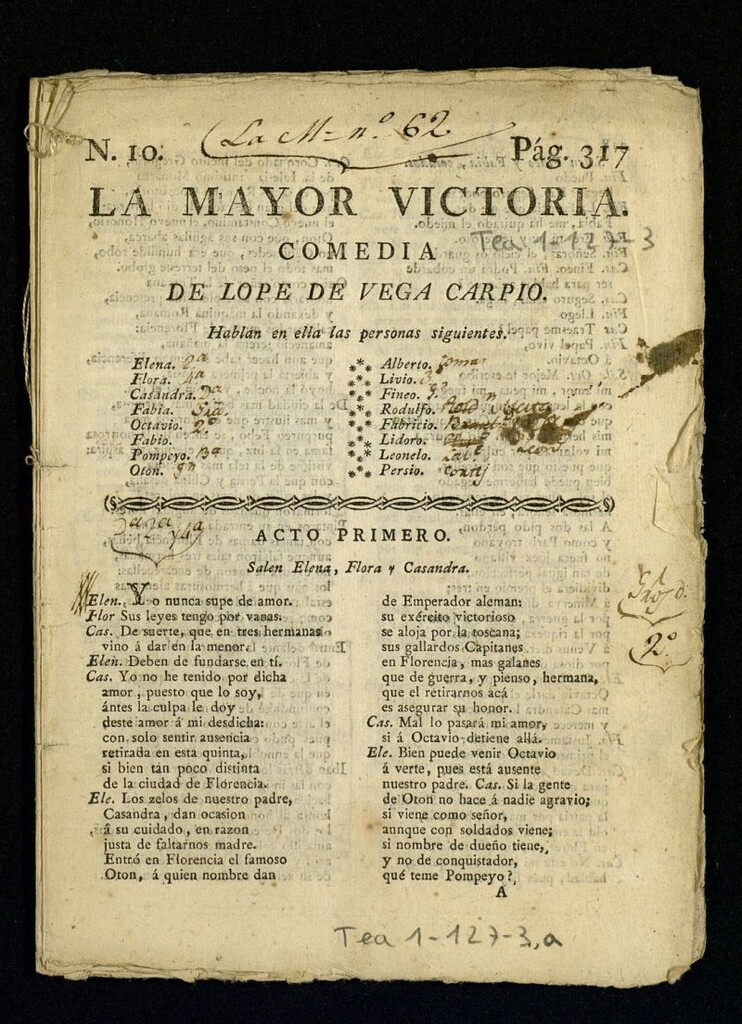 La M= n.º 62
N. 10. Pág. 317
LA MAYOR VICTORIA.
COMEDIA
Tea 1-127-3
DE LOPE DE VEGA CARPIO.
Hablan en ella las personas siguientes.
Elena. 2.ª
Flora. 4ª
Casandra.
Fabia.
Octavio. 2.º
Fabio.
Pompeyo.
Oton.
Alberto.
Livio.
Fineo.
Rodulfo.
Fabricio.
Lidoro.
Leonelo.
Persio.
ACTO PRIMERO.
Salen Elena, Flora y Casandra.
Elen. Yo nunca supe de amor.
Flor Sus leyes tengo por vanas.
Cas. De suerte, que en tres hermanas
vino á dar en la menor.
Elen. Deben de fundarse en tí.
Cas. Yo no he tenido por dicha
amor, puesto que lo soy,
ántes la culpa le doy
deste amor á mi desdicha:
con solo sentir ausencia
retirada en esta quinta,
si bien tan poco distinta
de la ciudad de Florencia.
Ele. Los zelos de nuestro padre,
Casandra, dan ocasion
á su cuidado, en razon
justa de faltarnos madre.
Entró en Florencia el famoso
Oton, á quien nombre dan
de Emperador aleman:
su exército victorioso
se aloja por la toscana;
sus gallardos Capitanes
en Florencia, mas galanes
que de guerra, y pienso, hermana,
que el retirarnos acá
es asegurar su honor.
Cas. Mal lo pasará mi amor,
si á Octavio detiene allá.
Ele. Bien puede venir Octavio
á verte, pues está ausente
nuestro padre. Cas. Si la gente
de Oton no hace á nadie agravio;
si viene como señor,
aunque con soldados viene;
si nombre de dueño tiene,
y no de conquistador,
qué teme Pompeyo?
A
2º
Tea 1-127-3,a